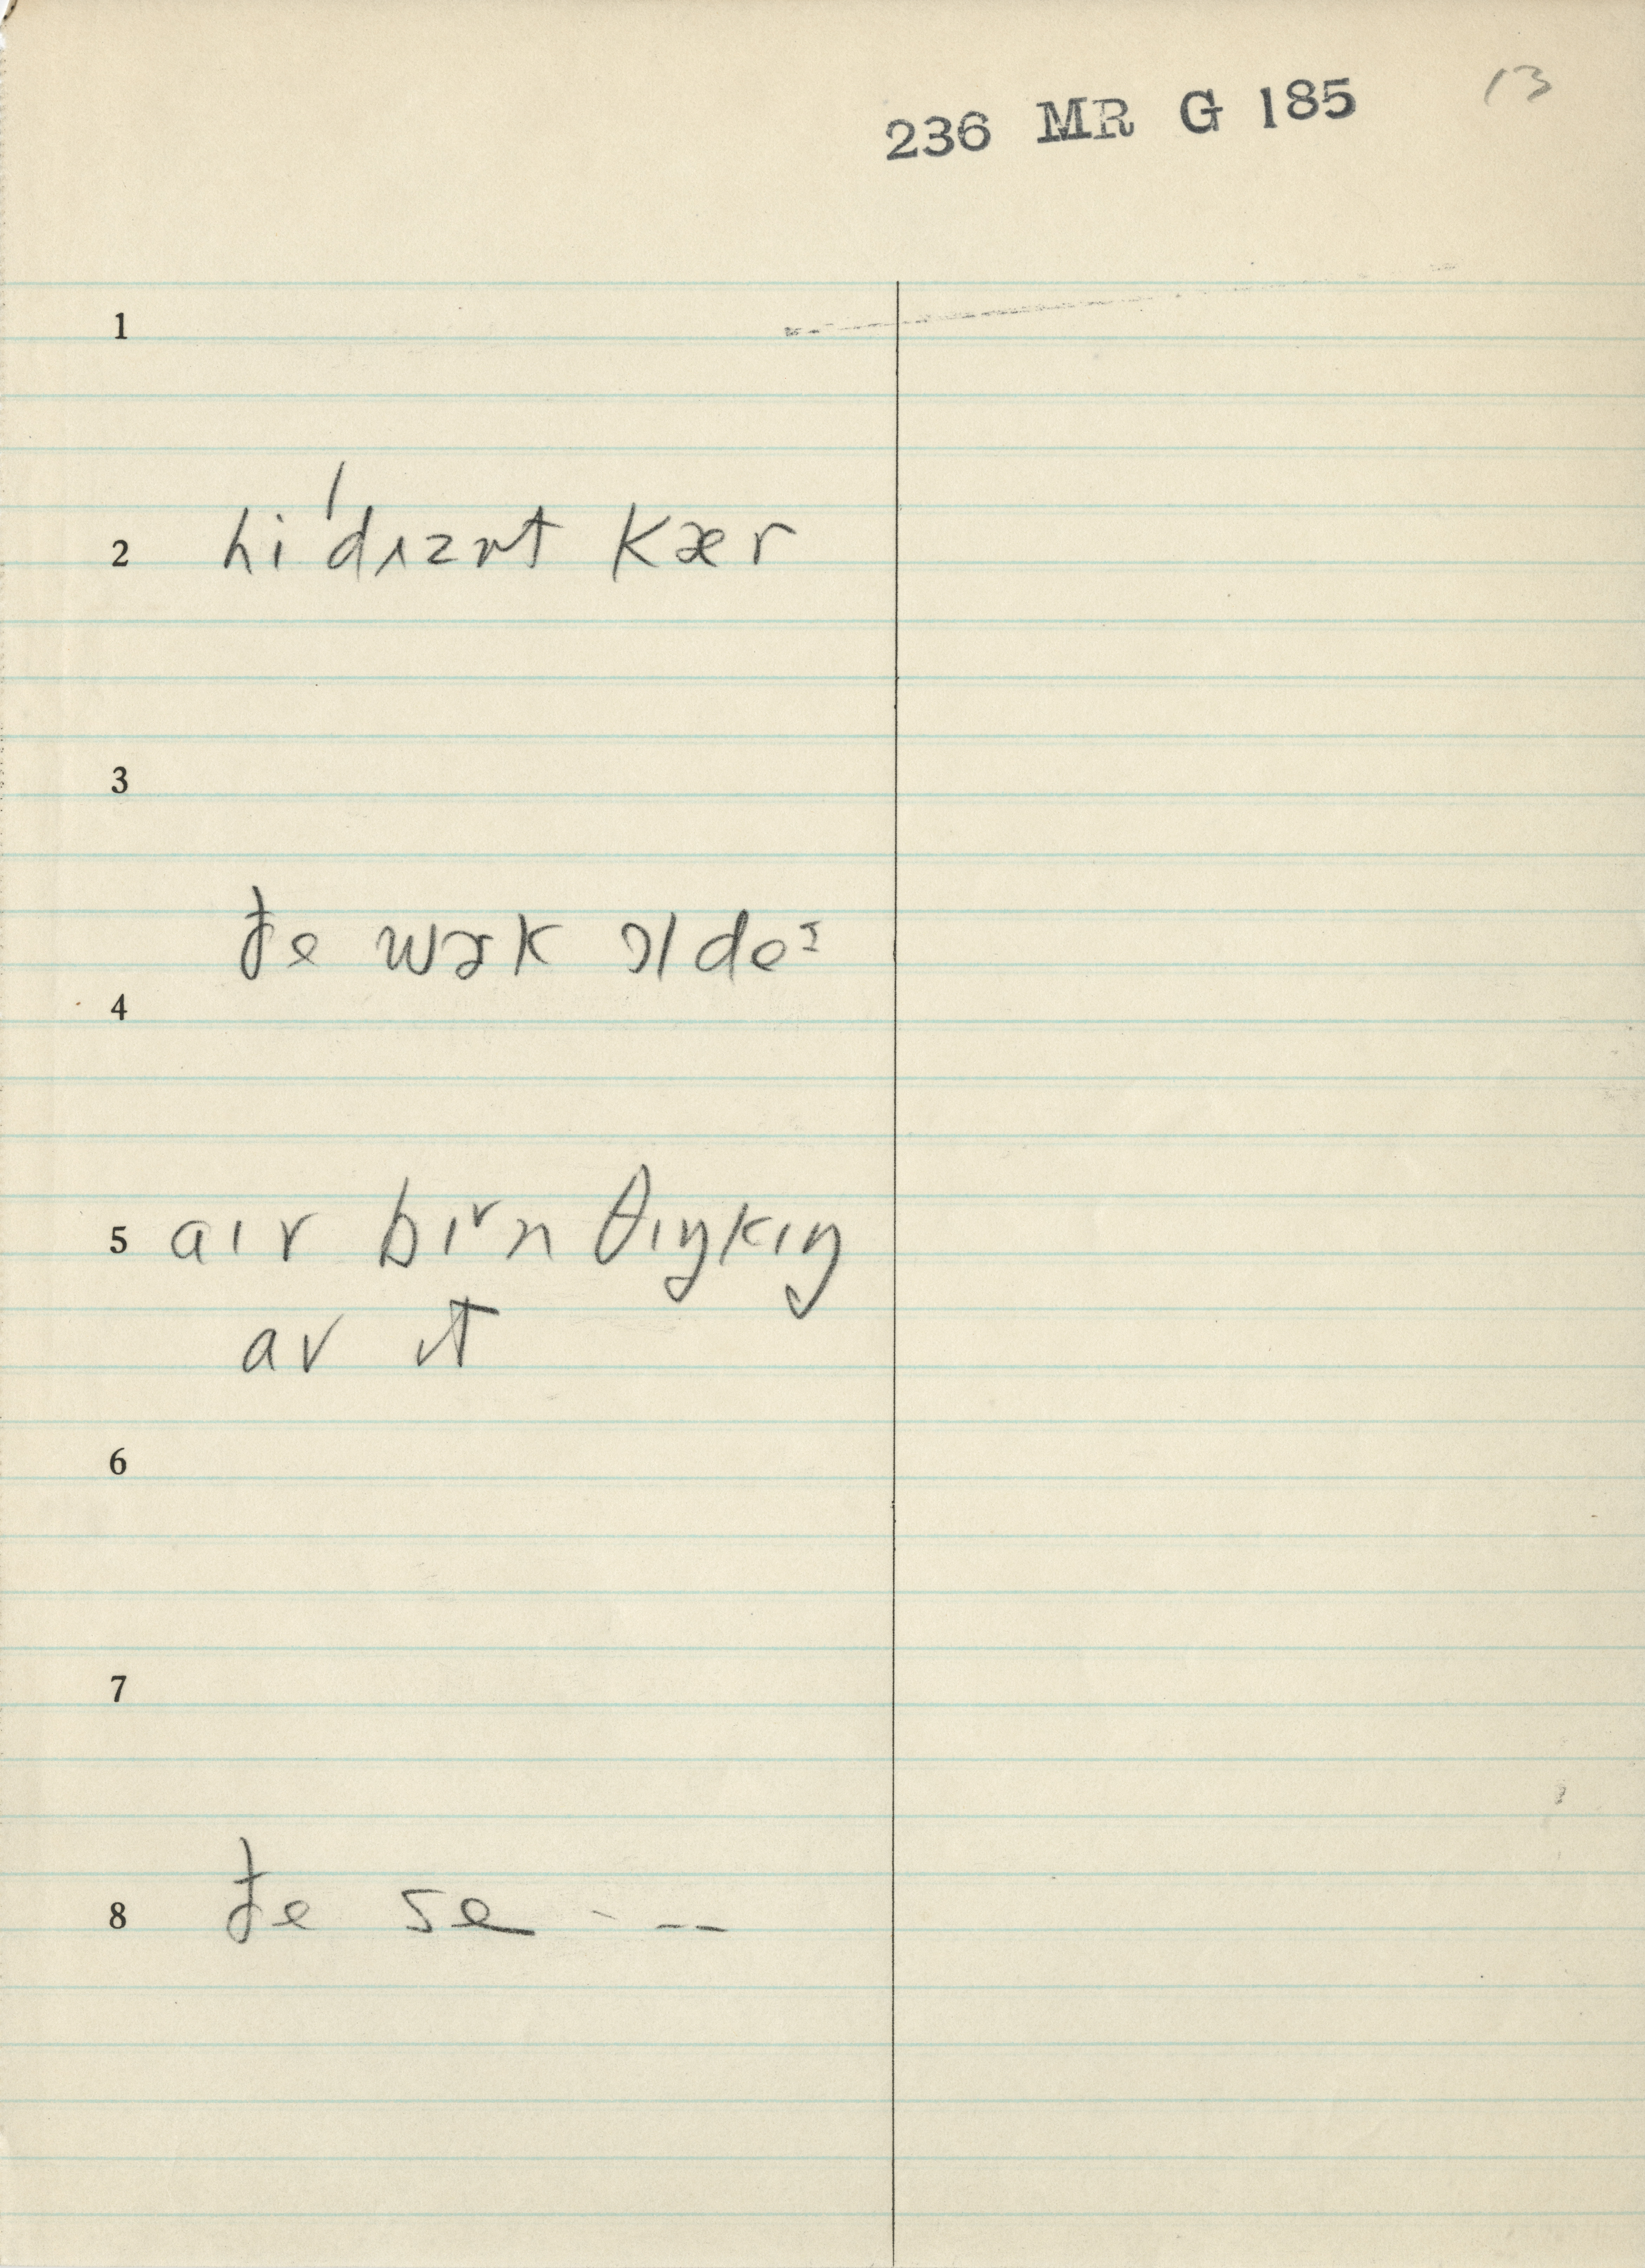 236 MR G 185 13
1
2 hi ˈdɪznt kær
3
ðe wɝk ɔl deᶦ
4
5 aɪv bɪᵛn θɪŋkɪŋ
av ɪt
6
7
8 ðe se - --